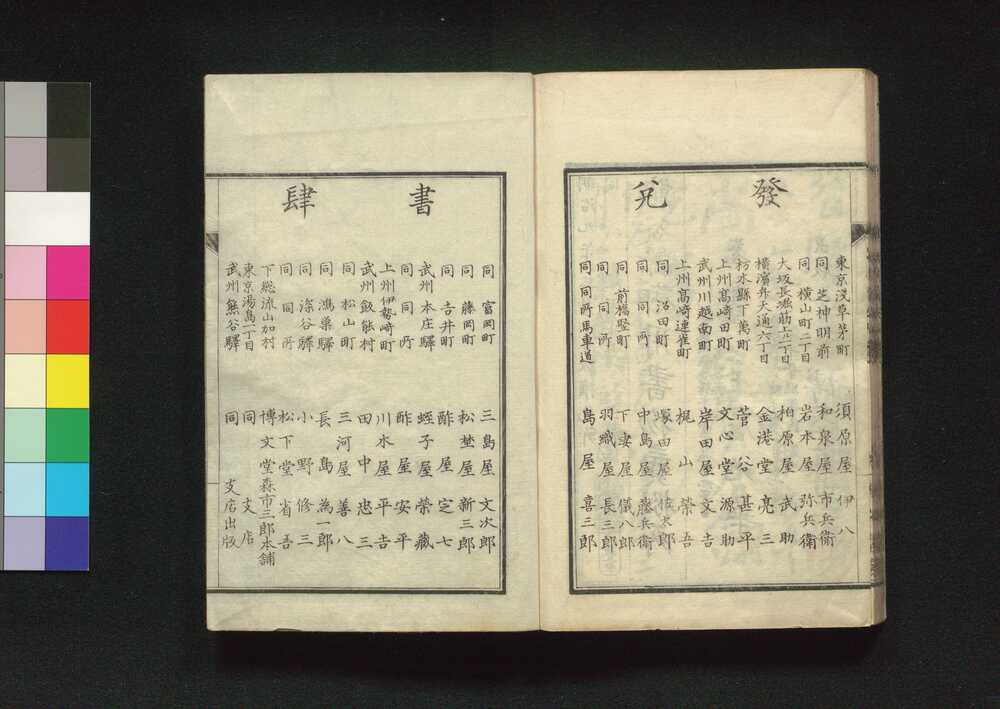 發兌
東京淺草茅町 須原屋伊八
同 芝神明前 和泉屋市兵衛
同 横山町二丁目 岩本屋弥兵衛
大坂長堀筋上二丁目 柏原屋武助
横濱弁天通六丁目 金港堂亮三
栃木縣下萬町 菅谷甚平
上州高崎田町 文心堂源助
武州川越南町 岸田屋文吉
上州高崎連雀町 梶山榮吾
同 沼田町 塚田屋太郎
同 同所 中島屋藤兵衛
同 前橋竪町 下妻屋儀八郎
同 同所 羽織屋長三郎
同 同所馬車道 島屋喜三郎
書肆
同 富岡町 三島屋文次郎
同 藤岡町 松埜屋新三郎
同 吉井町 酢屋定七
武州本庄驛 蛭子屋榮藏
同 同所 酢屋安平
上州伊勢崎町 川本屋平吉
武州飯能村 田中忠三
同 松山町 三河屋善八
同 鴻巣驛 長島為一郎
同 深谷驛 小野修三
同 同所 松下堂省吾
下総流山加村 博文堂森市三郎本舗
東京湯島一丁目 同 支店
武州熊谷驛 同 支店出版